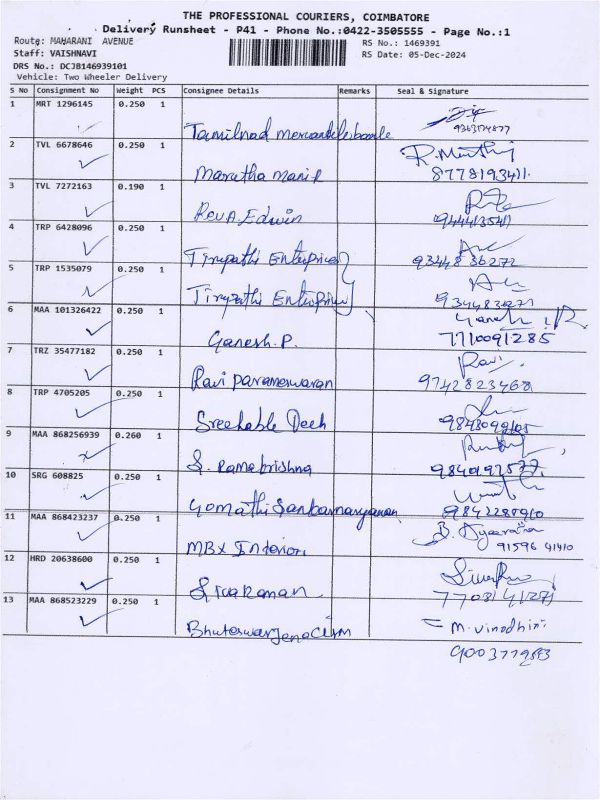 THE PROFESSIONAL COURIERS, COIMBATORE
Delivery Runsheet - P41 - Phone No.:0422-3505555 - Page No.:1
Route: MAHARANI AVENUE
RS No.: 1469391
Staff: VAISHNAVI
RS Date: 05-Dec-2024
DRS No.: DCJB146939101
Vehicle: Two Wheeler Delivery
S No Consignment No Weight PCS Consignee Details Remarks Seal & Signature
1 MRT 1296145 0.250 1
Tamilnad mercantile
2 TVL 6678646 0.250 1 R. Murthy
Marutha 8778193411
3 TVL 7272163 0.190 1
Reva Edwin
4 TRP 6428096 0.250 1
Tirupathi Enterprises 9344836272
5 TRP 1535079 0.250 1
Tirupathi Enterprises
6 MAA 101326422 0.250 1 Ganesh
Ganesh.P. 7710091285
7 TRZ 35477182 0.250 1 Ravi
Ravi parameswaran 9742823468
8 TRP 4705205 0.250 1
Sreehable Tech
9 MAA 868256939 0.260 1
S. Ramakrishna
10 SRG 608825 0.250 1
Gomathi Sankarnarayanan 9842287910
11 MAA 868423237 0.250 1
MBX Interior 91596 41410
12 HRD 20638600 0.250 1
Sivaraman
13 MAA 868523229 0.250 1
M. Vinodhini